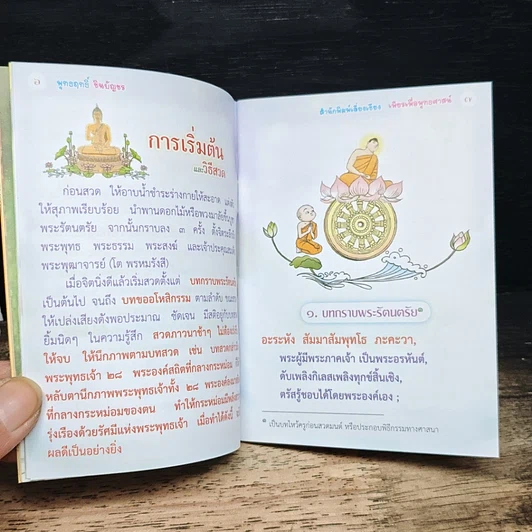 ๖ พุทธฤทธิ์ ชินบัญชร
การเริ่มต้น
และวิธีสวด
ก่อนสวด ให้อาบน้ำชำระร่างกายให้สะอาด
ให้สุภาพเรียบร้อย นำพานดอกไม้หรือพวงมาลัยขึ้นบูชา
พระรัตนตรัย จากนั้นกราบลง ๓ ครั้ง ตั้งจิตระลึกถึง
พระพุทธ พระธรรม พระสงฆ์ และเจ้าประคุณสมเด็จ
พระพุฒาจารย์ (โต พรหมรังสี)
เมื่อจิตนิ่งดีแล้วเริ่มสวดตั้งแต่ บทกราบพระรัตนตรัย
เป็นต้นไป จนถึง บทขออโหสิกรรม ตามลำดับ
ให้เปล่งเสียงดังพอประมาณ ชัดเจน มีสติอยู่กับบท
ยิ้มนิดๆ ในความรู้สึก สวดภาวนาช้าๆ ไม่ต้อง
ให้จบ ให้นึกภาพตามบทสวด เช่น บทสวด
พระพุทธเจ้า ๒๘ พระองค์สถิตที่กลางกระหม่อม
หลับตานึกภาพพระพุทธเจ้าทั้ง ๒๘ พระองค์
ที่กลางกระหม่อมของตน ทำให้กระหม่อม
รุ่งเรืองด้วยรัศมีแห่งพระพุทธเจ้า เมื่อทำได้ดังนี้
ผลดีเป็นอย่างยิ่ง
สำนักพิมพ์เลี่ยงเชียง เพียรเพื่อพุทธศาสน์ ๗
๑. บทกราบพระรัตนตรัย
อะระหัง สัมมาสัมพุทโธ ภะคะวา,
พระผู้มีพระภาคเจ้า เป็นพระอรหันต์,
ดับเพลิงกิเลสเพลิงทุกข์สิ้นเชิง,
ตรัสรู้ชอบได้โดยพระองค์เอง ;
เป็นบทไหว้ครูก่อนสวดมนต์ หรือประกอบพิธีกรรมทางศาสนา